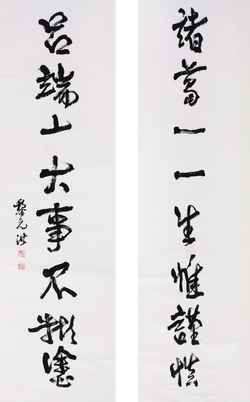 諸葛一一生惟謹慎
呂端山大事不糊塗
黎元洪